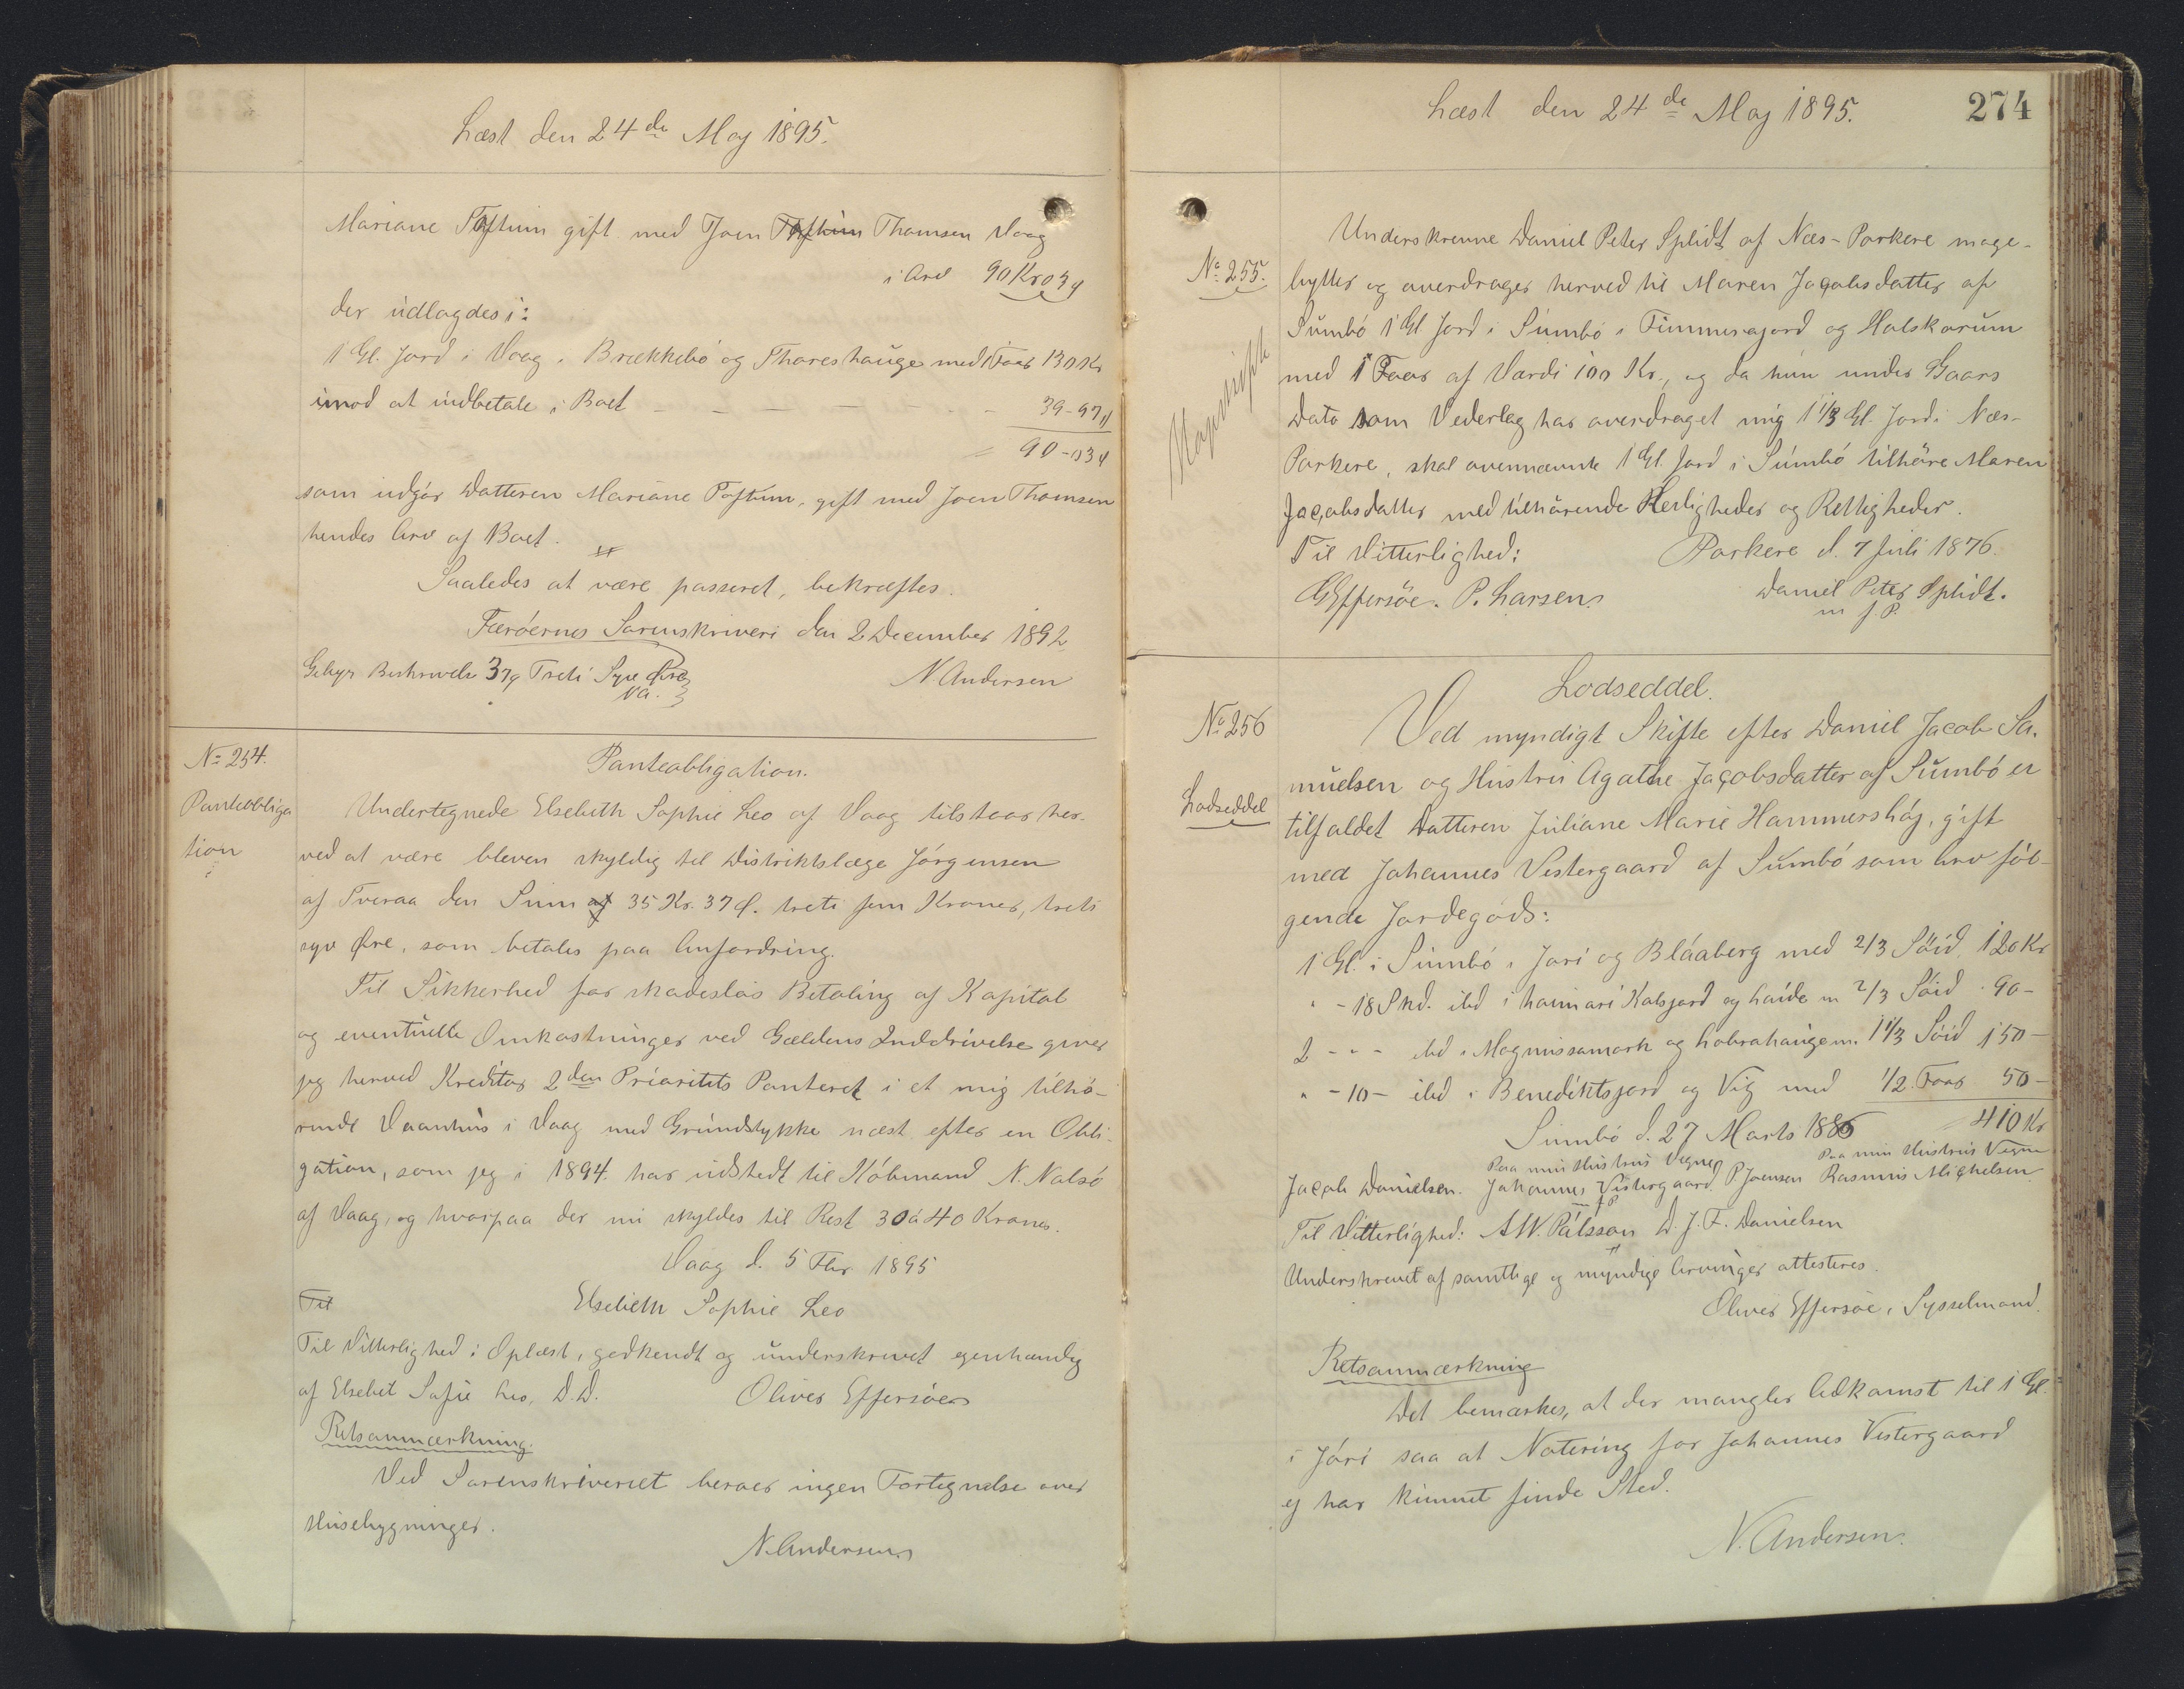 Læst den 24de Maj 1895.
Mariane Toftum gift med Joen Toftum Thomsen Vaag
i Arv 90 Kr 03 ø
der udlagdes i:
1 Gl. Jord i Vaag i Brækkebø og Thoreshauge med 1 Faar 130 Kr
imod at indbetale i Boet - - - - - 39-97 ø
= 90-03 ø
som udgør Datteren Mariane Toftum, gift med Joen Thomsen
hendes Arv af Boet.
Saaledes at være passeret, bekræftes.
Færøernes Sorenskriveri den 2 December 1892
N. Andersen
Gebyr Beskrivelse 37 ø Treti Syv Øre
N A.
No 254.
Panteobliga
tion
Panteobligation.
Undertegnede Elsebeth Sophie Leo af Vaag tilstaar her-
ved at være bleven skyldig til Distriktslæge Jørgensen
af Tveraa den Sum af 35 Kr. 37 Ø. treti fem Kroner, treti
syv Øre, som betales paa Anfordring.
Til Sikkerhed for skadesløs Betaling af Kapital
og eventuelle Omkostninger ved Gældens Inddrivelse giver
jeg herved Kreditor 2den Prioritets Panteret i et mig tilhø-
rende Vaanhus i Vaag med Grundstykke næst efter en Obli-
gation, som jeg i 1894 har udstedt til Købmand N. Nalsø
af Vaag, og hvorpaa der nu skyldes til Rest 30 à 40 Kroner.
Vaag d. 5 Fbr 1895
Til
Elsebeth Sophie Leo
Til Vitterlighed: Oplæst, godkendt og underskrevet egenhændig
af Elsebet Sofie Leo, D.D.
Oliver Effersøe
Retsanmærkning.
Ved Sorenskriveriet beroer ingen Fortegnelse over
Husebygninger.
N. Andersen
Læst den 24de Maj 1895.
274
No 255.
Mageskifte
Underskrevne Daniel Peter Splidt af Næs-Porkere mage-
bytter og overdrager herved til Maren Jacobsdatter af
Sumbø 1 Gl. Jord i Sumbø i Timmesajord og Halskorum
med 1 Faar af Værdi 100 Kr., og da hun under Gaars
Dato som Vederlag har overdraget mig 1 1/3 Gl. Jord i Næs-
Porkere, skal ovennævnte 1 Gl. Jord i Sumbø tilhøre Maren
Jacobsdatter med tilhørende Herligheder og Rettigheder.
Til Vitterlighed:
Porkere d. 7 Juli 1876.
GEffersöe. P. Larsen.
Daniel Peter Splidt.
m f P.
No 256
Lodseddel
Lodseddel.
Ved myndigt Skifte efter Daniel Jacob Sa-
muelsen og Hustru Agathe Jacobsdatter af Sumbø er
tilfaldet Datteren Juliane Marie Hammershøj, gift
med Johannes Vestergaard af Sumbø som Arv føl-
gende Jordegods:
1 Gl. i Sumbø i Jori og Blåaberg med 2/3 Söid 120 Kr
" - 18 Skd. ibd i Kalsjord og m 2/3 Söid 90 -
2 - " - ibd i Magnussamark og m. 1 1/3 Söid 150 -
" - 10 - ibd i Benediktsjord og Vig med 1/2 Faar 50 -
= 410 Kr
Sumbø d. 27 Marts 1886
Paa min Hustrus Vegne
Paa min Hustrus Vegne
Jacob Danielsen. Johannes Vestergaard. P Joensen Rasmus Michelsen
m f P
Til Vitterlighed: A W. Pålsson D. J. F. Danielsen
Underskrevet af samtlige og myndige Arvinger attesteres.
Oliver Effersøe, Sysselmand.
Retsanmærkning
Det bemærkes, at der mangler Adkomst til 1 Gl.
i Jóri saa at Notering for Johannes Vestergaard
ej har kunnet finde Sted.
N. Andersen.